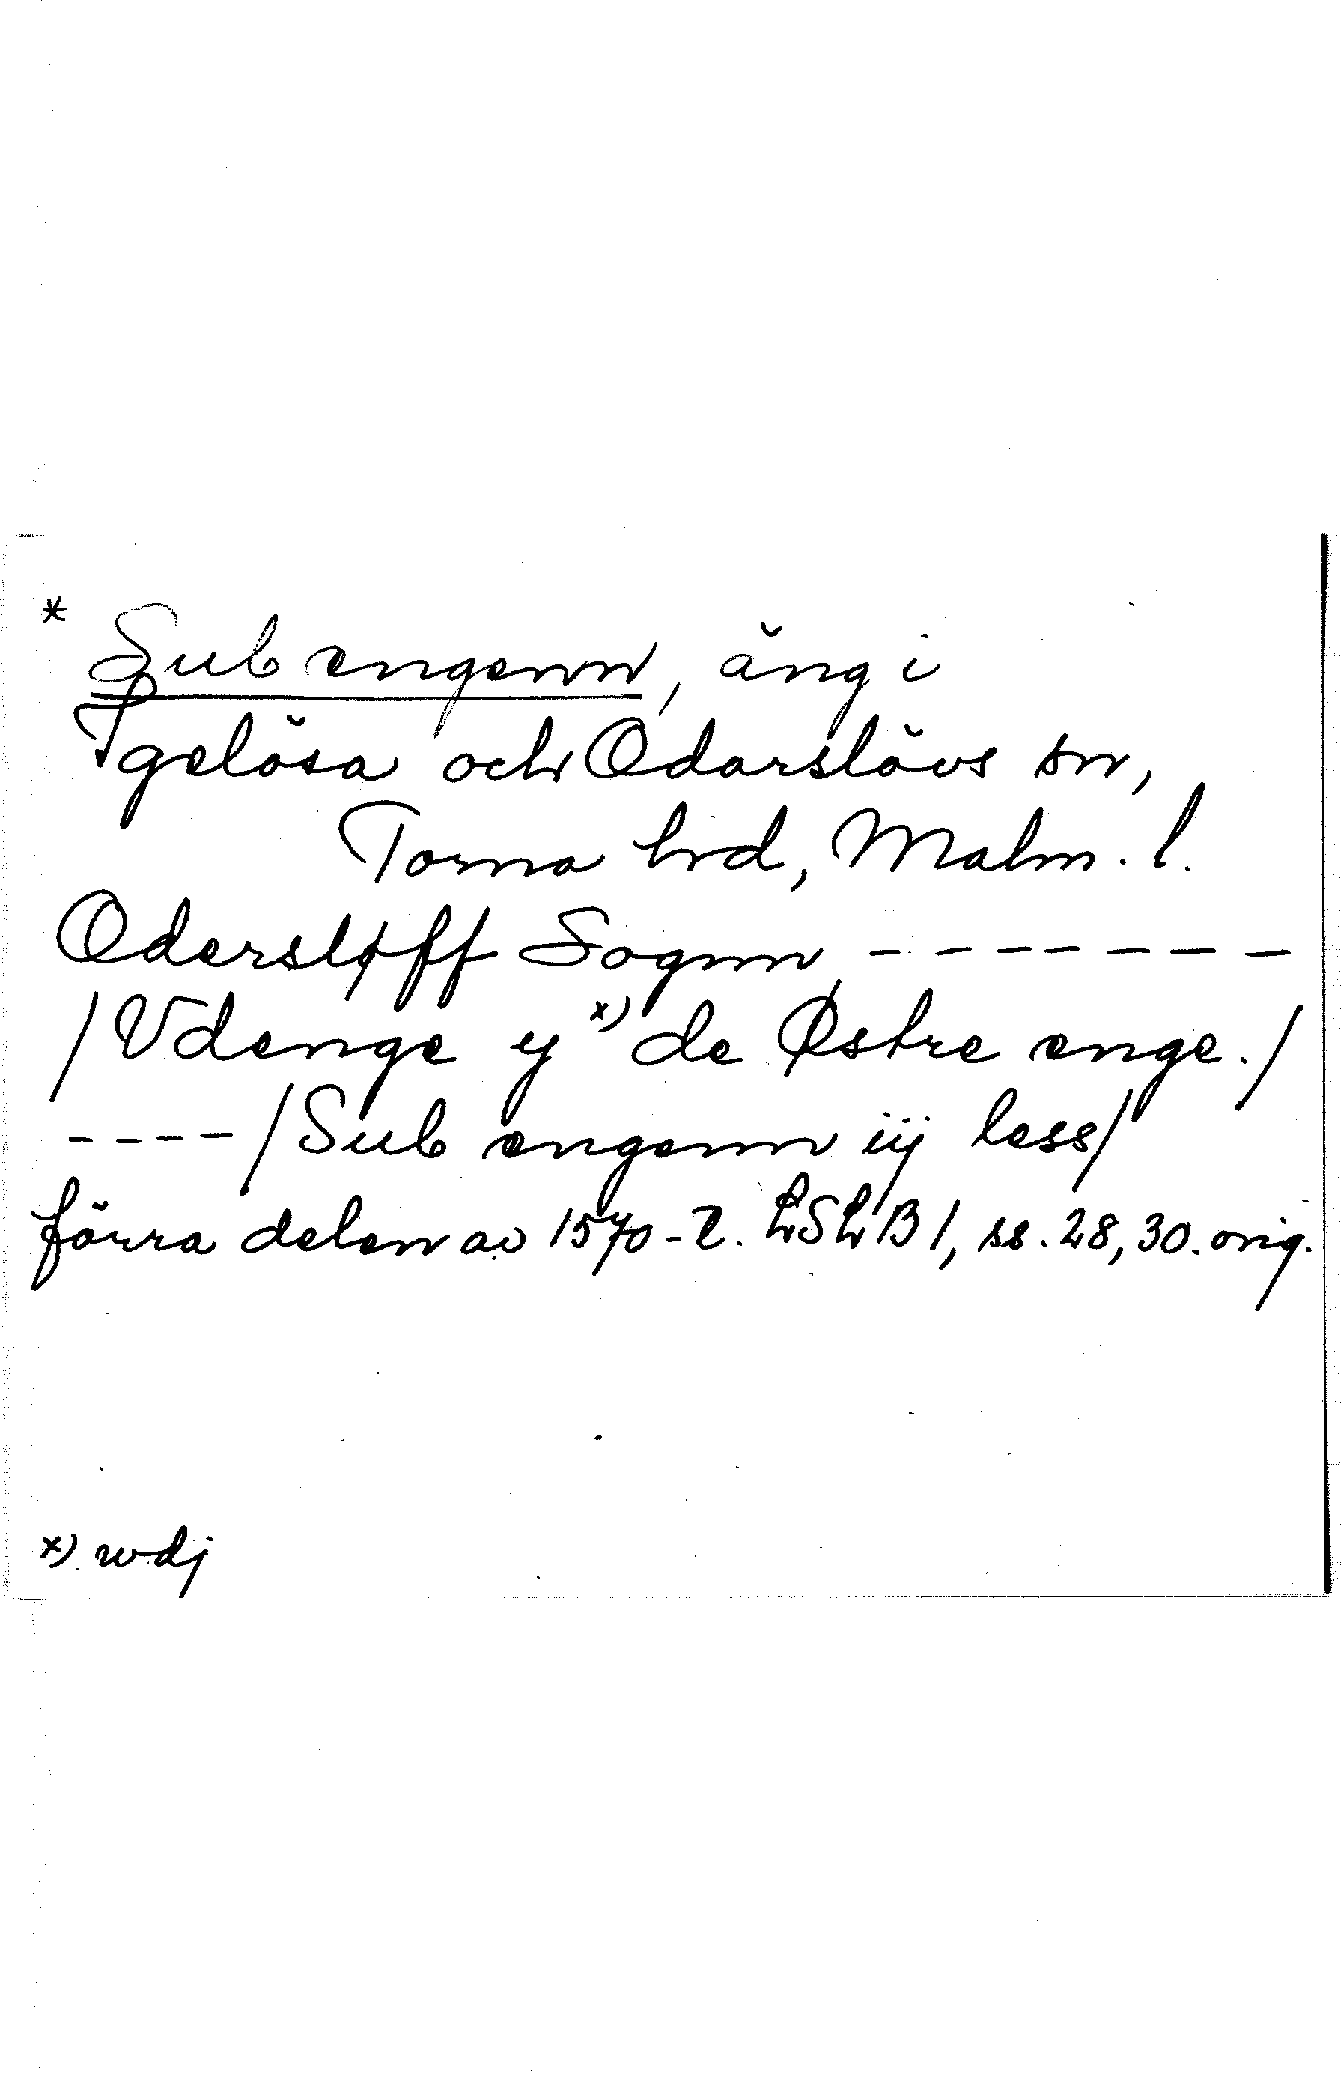 * Sub engenn, äng i
Igelösa och Odarslövs sn,
Torna hrd, Malm. l.
Odersløff Sognn, - - - - - - -
/Vdenge y x) de Østre enge./
- - - - /Sub engenn iij less/
förra delen av 1570-t. LSLB 1, ss. 28, 30. orig.
x) wdj